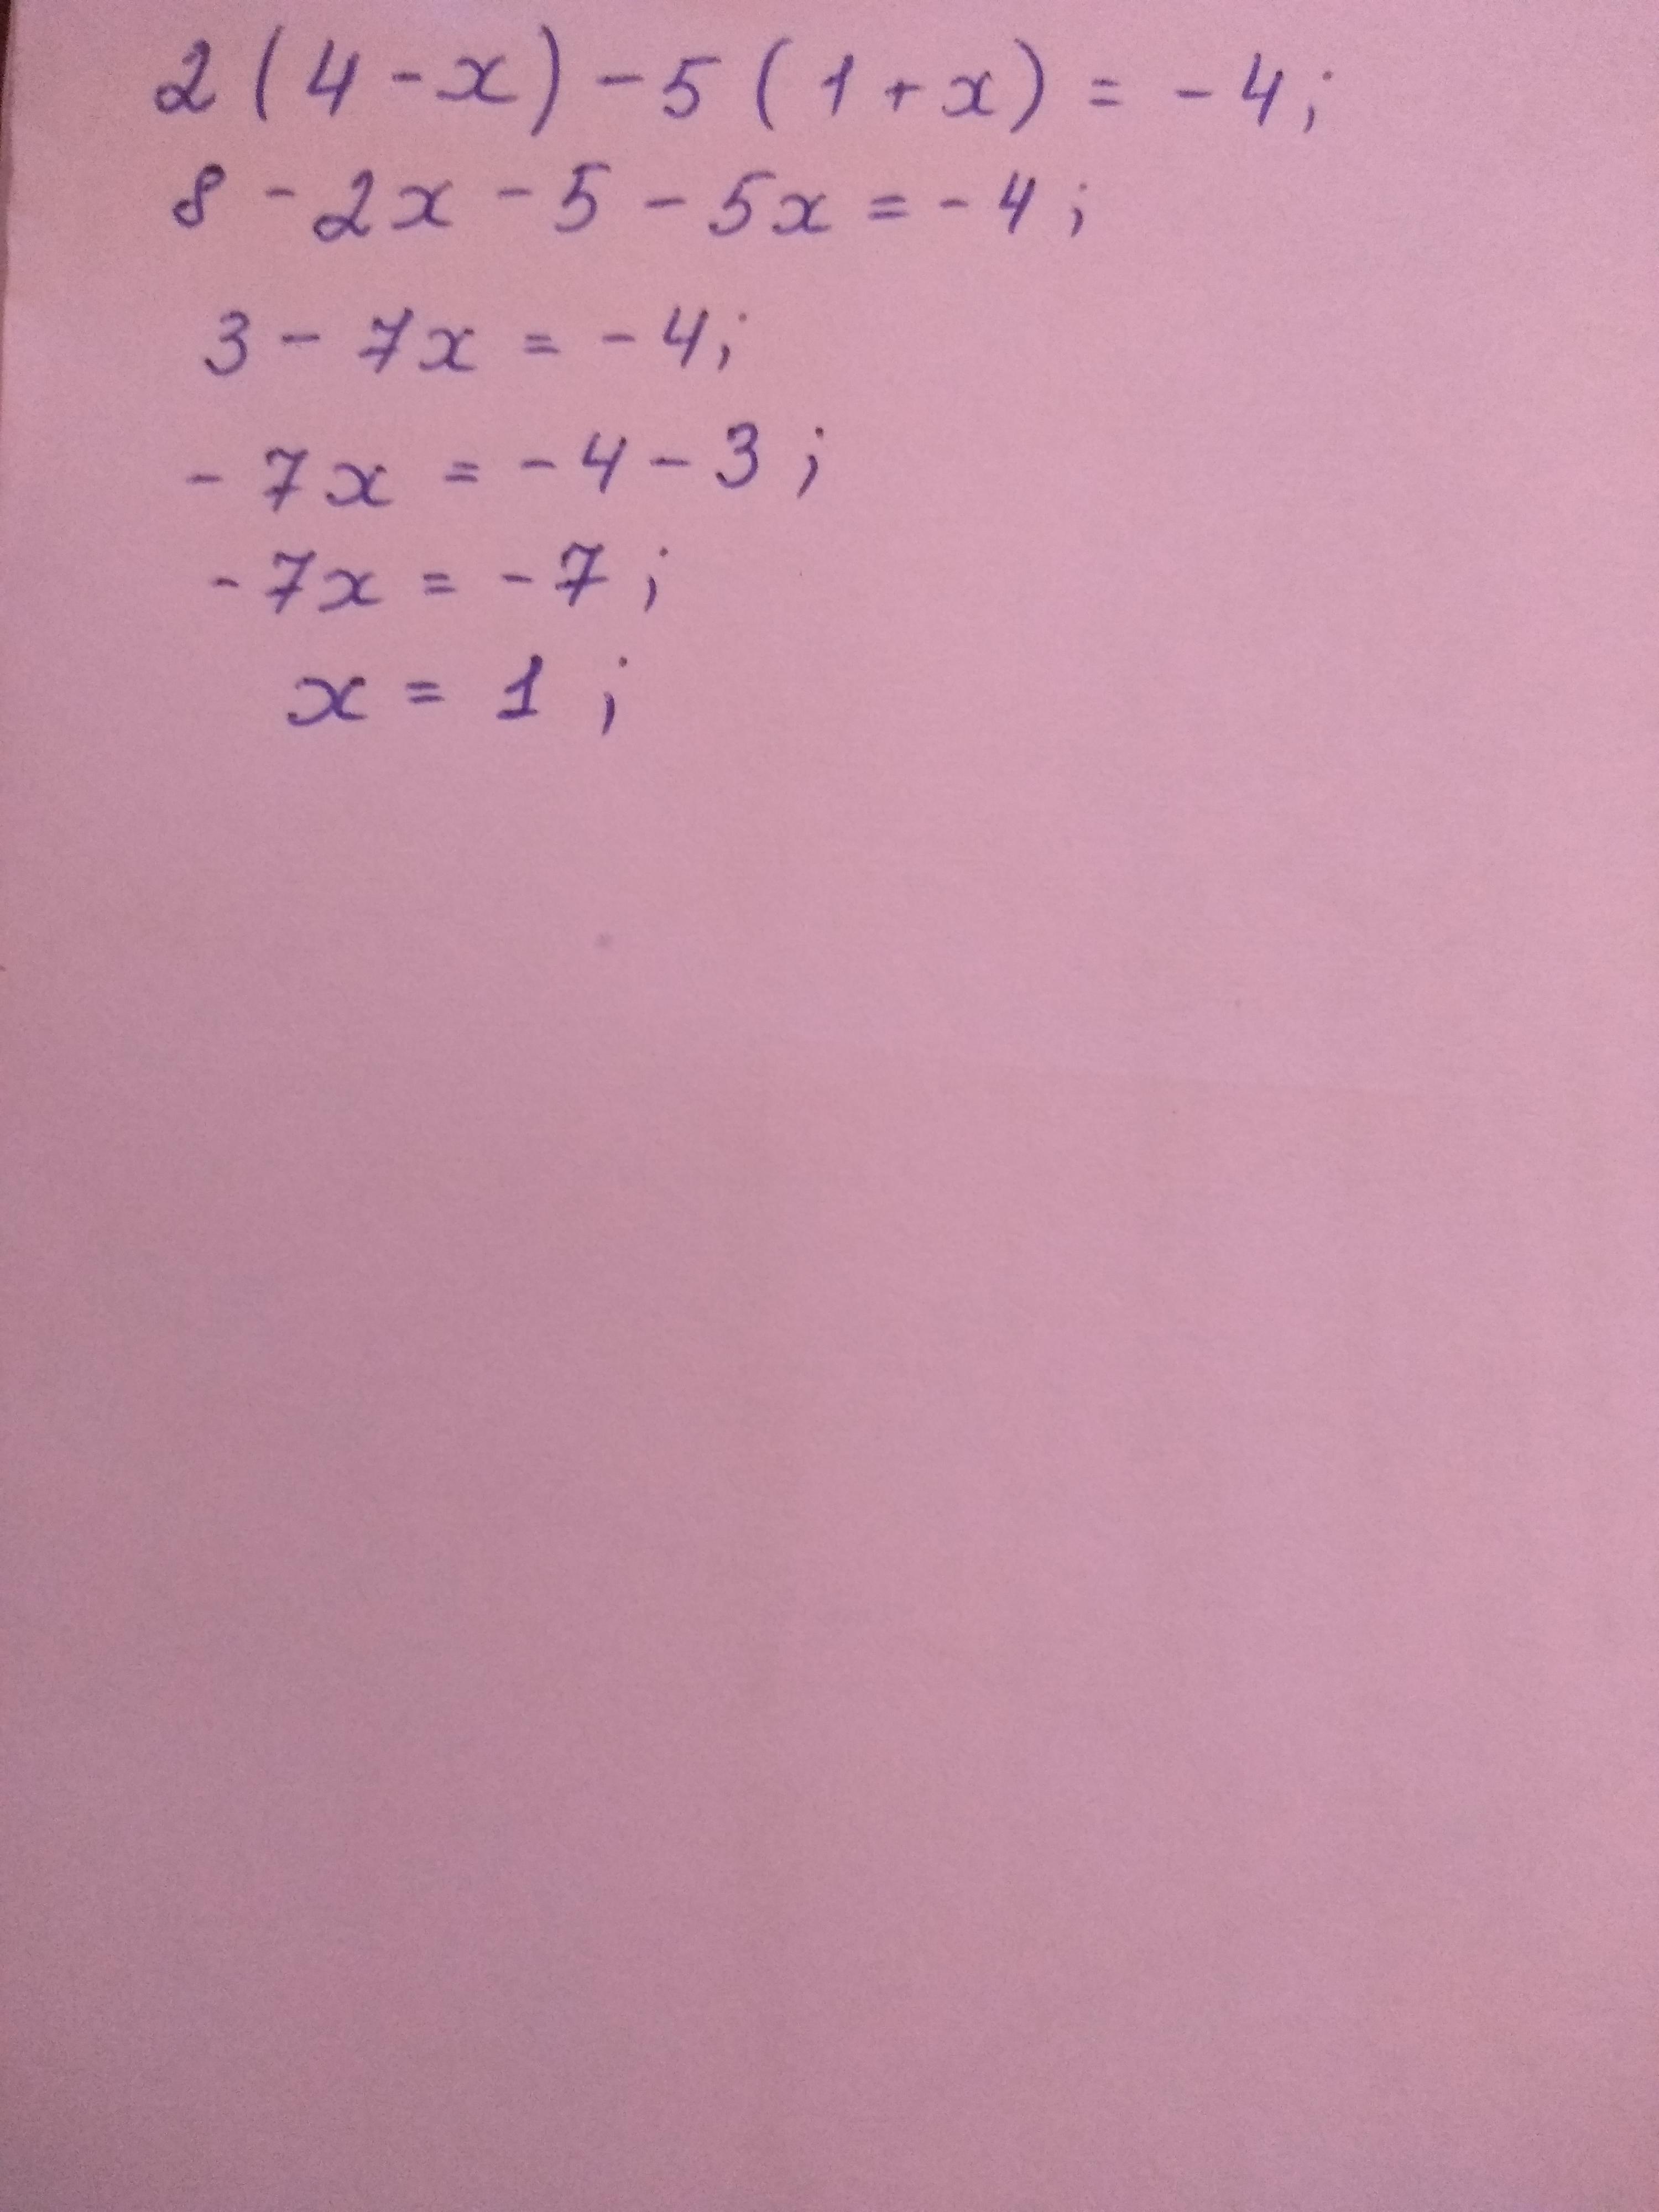 2(4-x)-5(1+x)=-4;
8-2x-5-5x=-4;
3-7x=-4;
-7x=-4-3;
-7x=-7;
x=1;